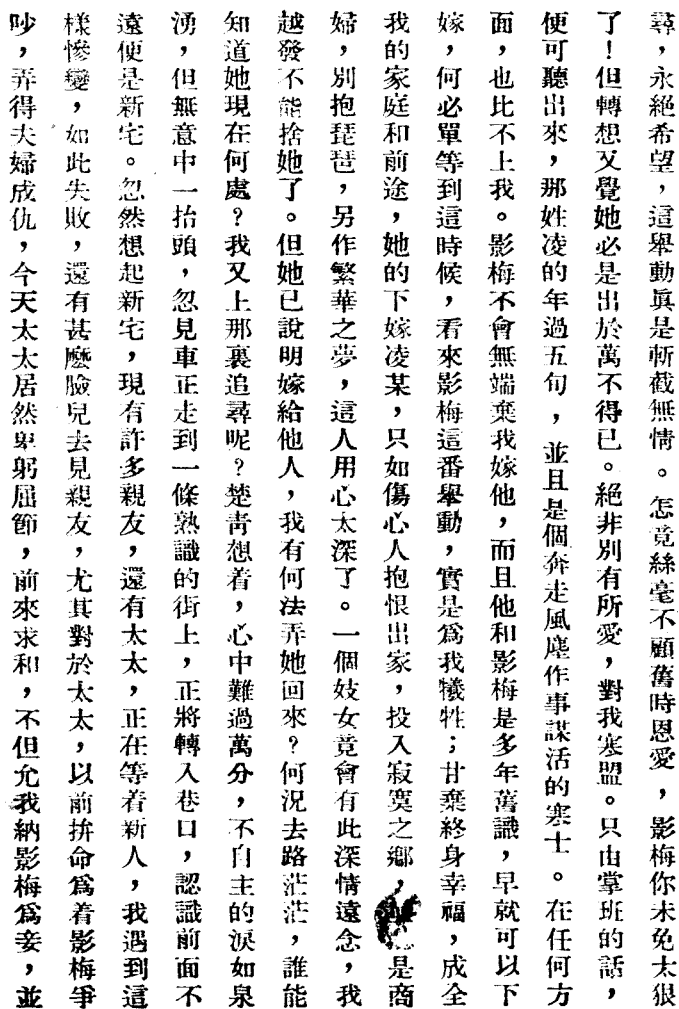 尋，永絕希望，這舉動眞是斬截無情。怎竟絲毫不顧舊時恩愛，影梅你未免太狠
了！但轉想又覺她必是出於萬不得已。絕非別有所愛，對我寒盟。只由掌班的話，
便可聽出來，那姓凌的年過五旬，並且是個奔走風塵作事謀活的寒士。在任何方
面，也比不上我。影梅不會無端棄我嫁他，而且他和影梅是多年舊識，早就可以下
嫁，何必單等到這時候，看來影梅這番舉動，實是爲我犧牲；甘棄終身幸福，成全
我的家庭和前途，她的下嫁凌某，只如傷心人抱恨出家，投入寂寞之鄕，是商
婦，別抱琵琶，另作繁華之夢，這人用心太深了。一個妓女竟會有此深情遠念，我
越發不能捨她了。但她已說明嫁給他人，我有何法弄她回來？何況去路茫茫，誰能
知道她現在何處？我又上那裏追尋呢？楚靑想着，心中難過萬分，不自主的淚如泉
湧，但無意中一抬頭，忽見車正走到一條熟識的街上，正將轉入巷口，認識前面不
遠便是新宅。忽然想起新宅，現有許多親友，還有太太，正在等着新人，我遇到這
樣慘變，如此失敗，還有甚麼臉兒去見親友，尤其對於太太，以前拚命爲着影梅爭
吵，弄得夫婦成仇，今天太太居然卑躬屈節，前來求和，不但允我納影梅爲妾，並